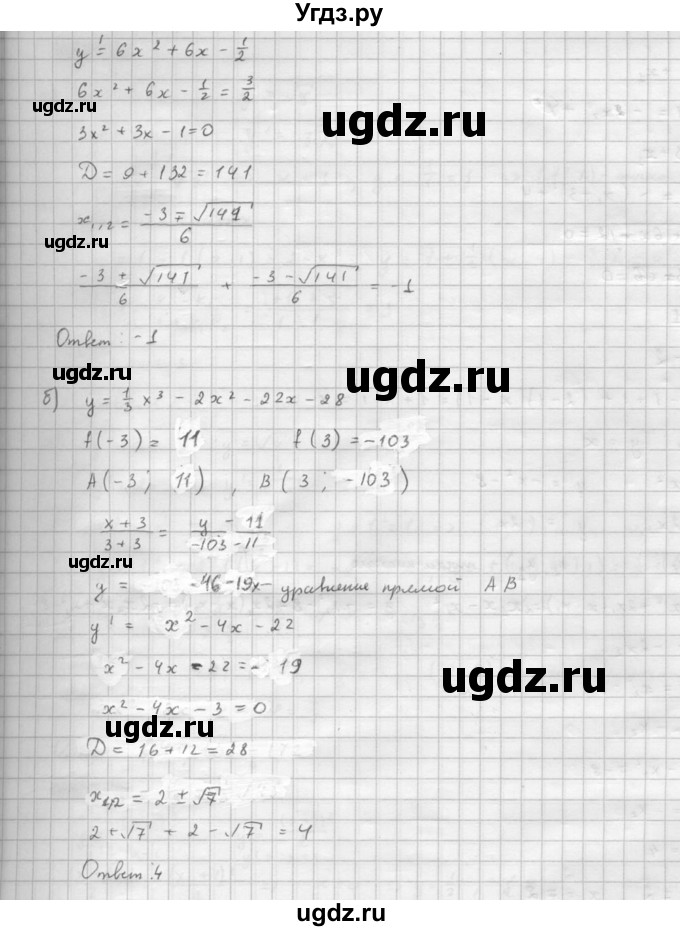 Угдз.ру
y' = 6x² + 6x - 1/2
6x² + 6x - 1/2 = 3/2
ugdz.ru
ugdz.ru
3x² + 3x - 1 = 0
D = 9 + 132 = 141
x₁,₂ = (-3 ∓ √141)/6
ugdz.ru
(-3 + √141)/6 + (-3 - √141)/6 = -1
Ответ: -1
ugdz.ru
ugdz.ru
б) y = 1/3 x³ - 2x² - 22x - 28
f(-3) = 11 f(3) = -103
A(-3; 11), B(3; -103)
(x + 3)/(3 + 3) = (y - 11)/(-103 - 11)
ugdz.ru
y = -46-19x - уравнение прямой AB
y' = x² - 4x - 22
x² - 4x - 22 = -19
ugdz.ru
x² - 4x - 3 = 0
ugdz.ru
D = 16 + 12 = 28
x₁,₂ = 2 ± √7
2 + √7 + 2 - √7 = 4
Ответ: 4
ugdz.ru
ugdz.ru